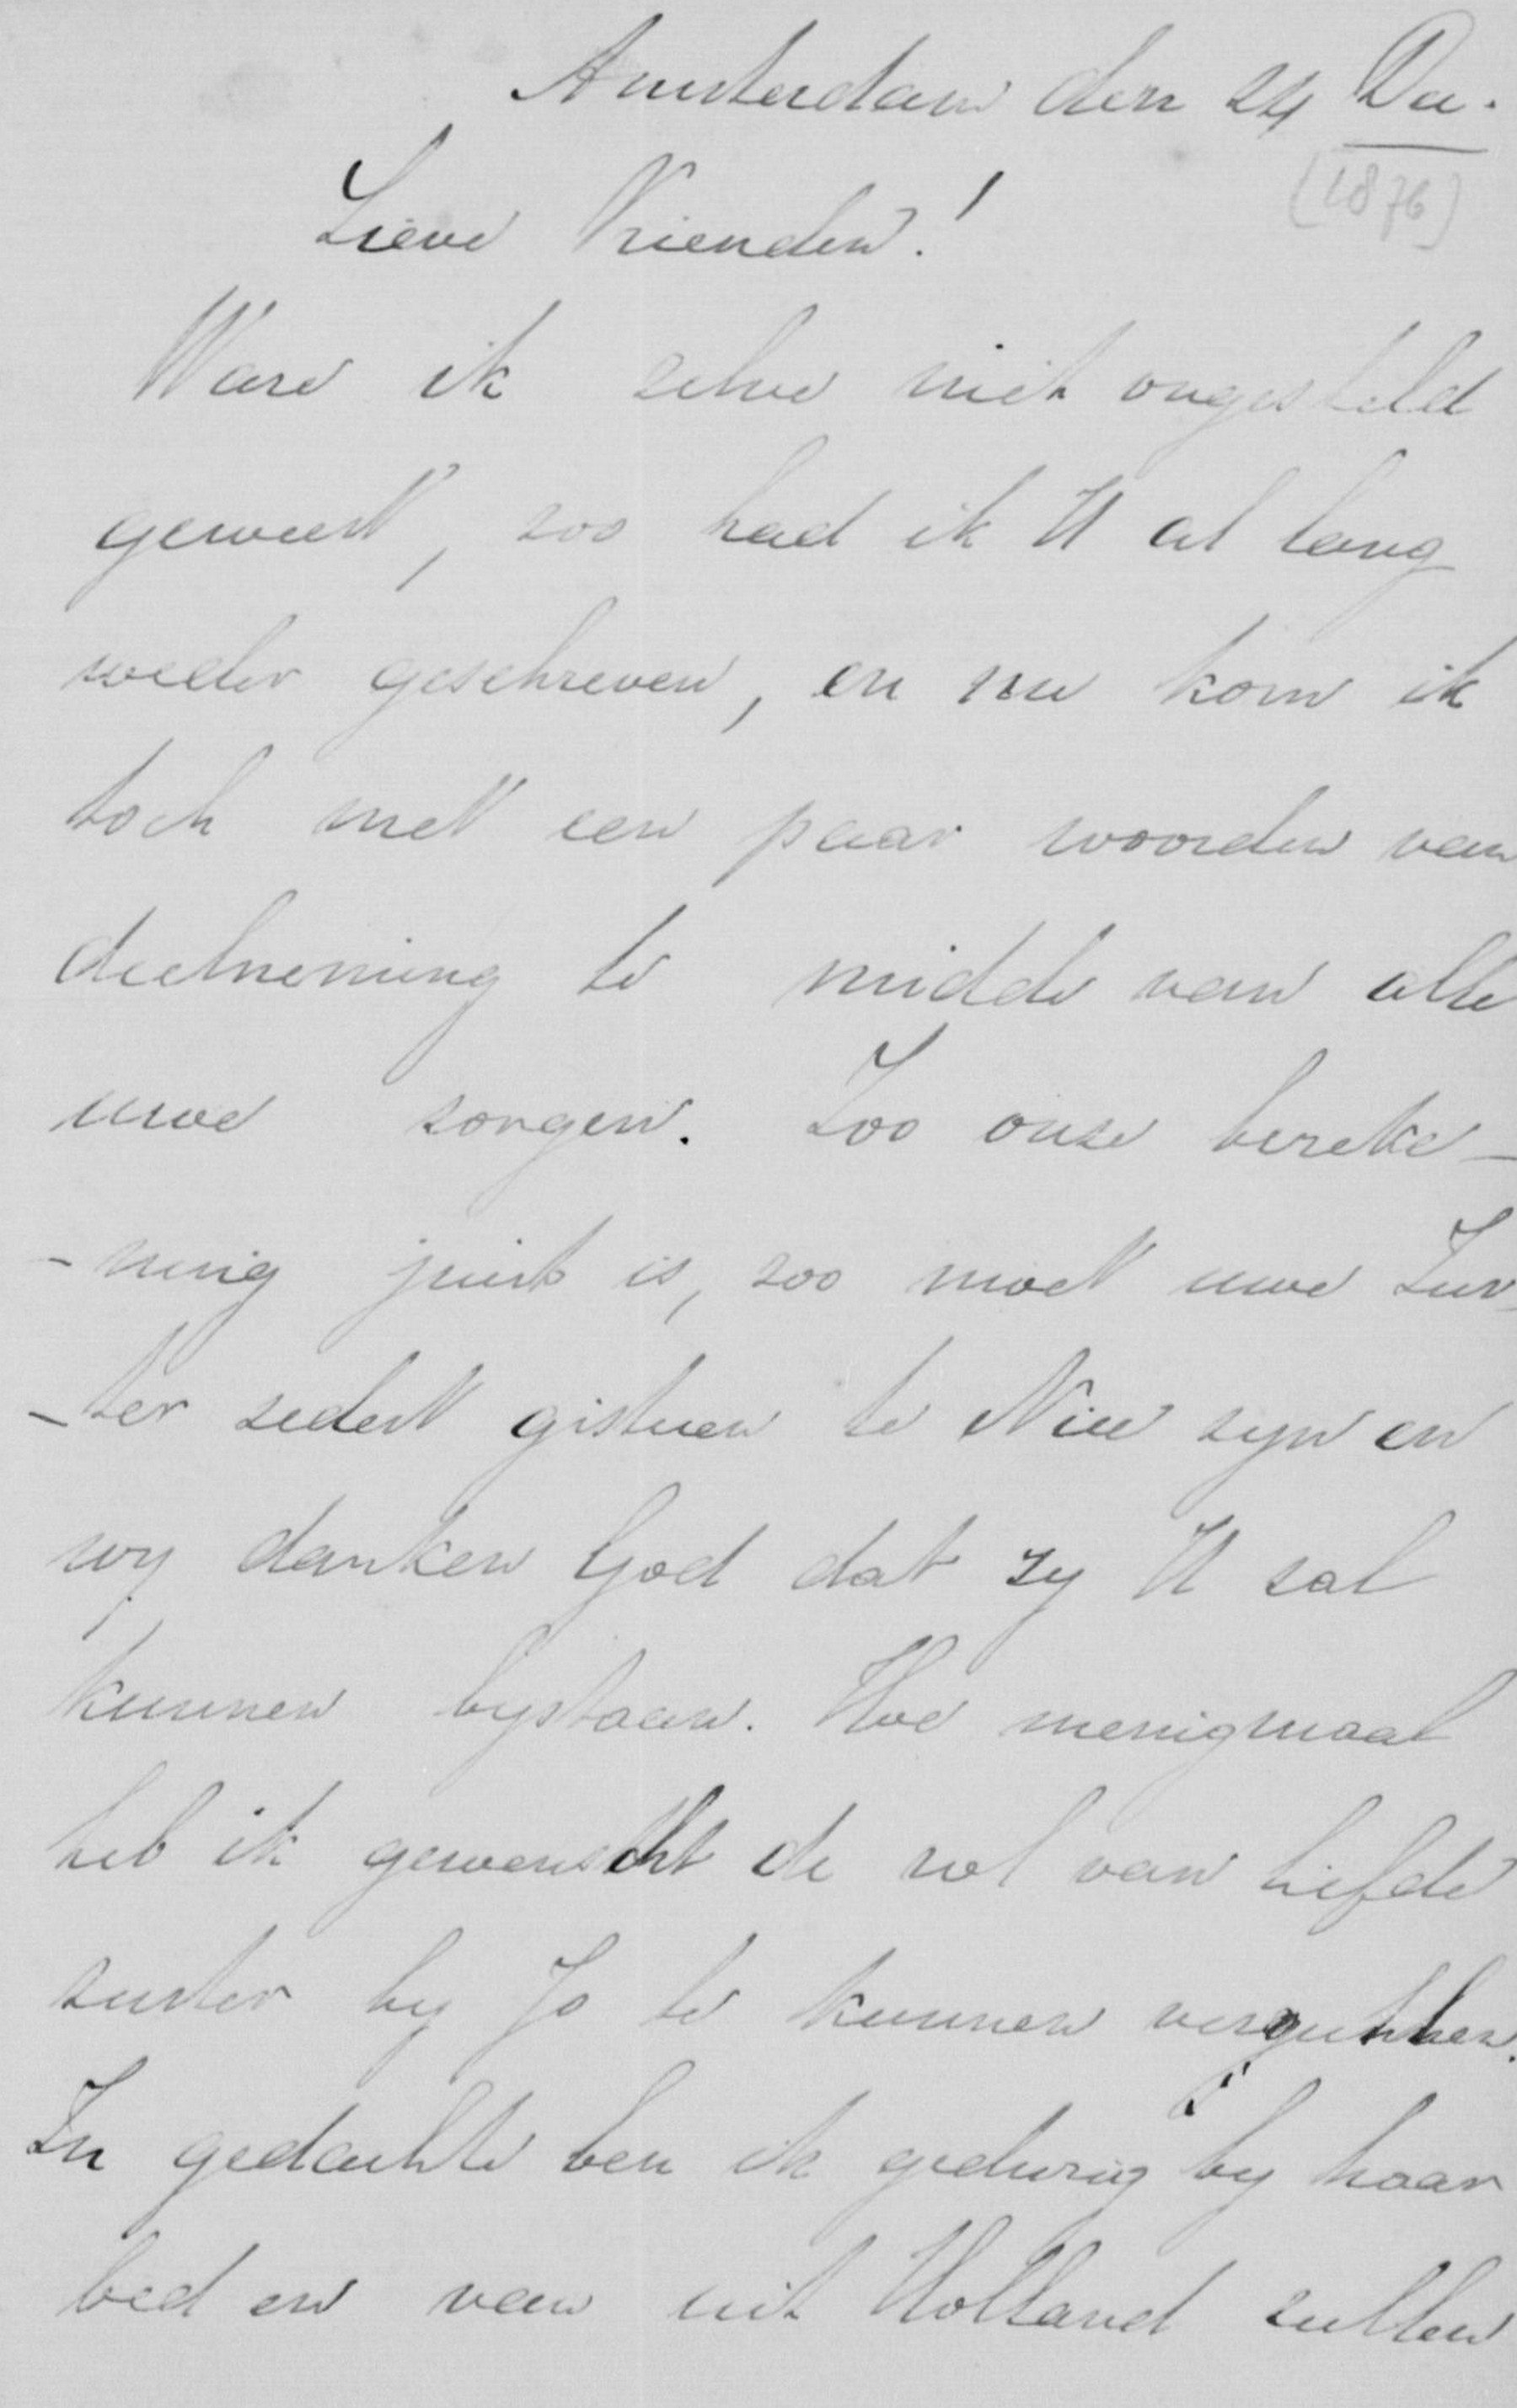 Amsterdam den 24 Dec.
(1876)
Lieve Vrienden!
Ware ik zelve niet ongesteld
geweest, zoo had ik U al lang
weder geschreven, en nu kom ik
toch met een paar woorden van
deelneming te midde van alle
uwe zorgen. Zoo onze bereke-
-ning juist is, zoo moet uwe Zus-
-ter sedert gisteren te Nice zyn en
wy danken God dat zy U zal
kunnen bystaan. Hoe menigmaal
heb ik gewenscht de rol van liefde
zuster by Jo te kunnen vervullen.
In gedachte ben ik gedurig by haar
bed en van uit Holland zullen